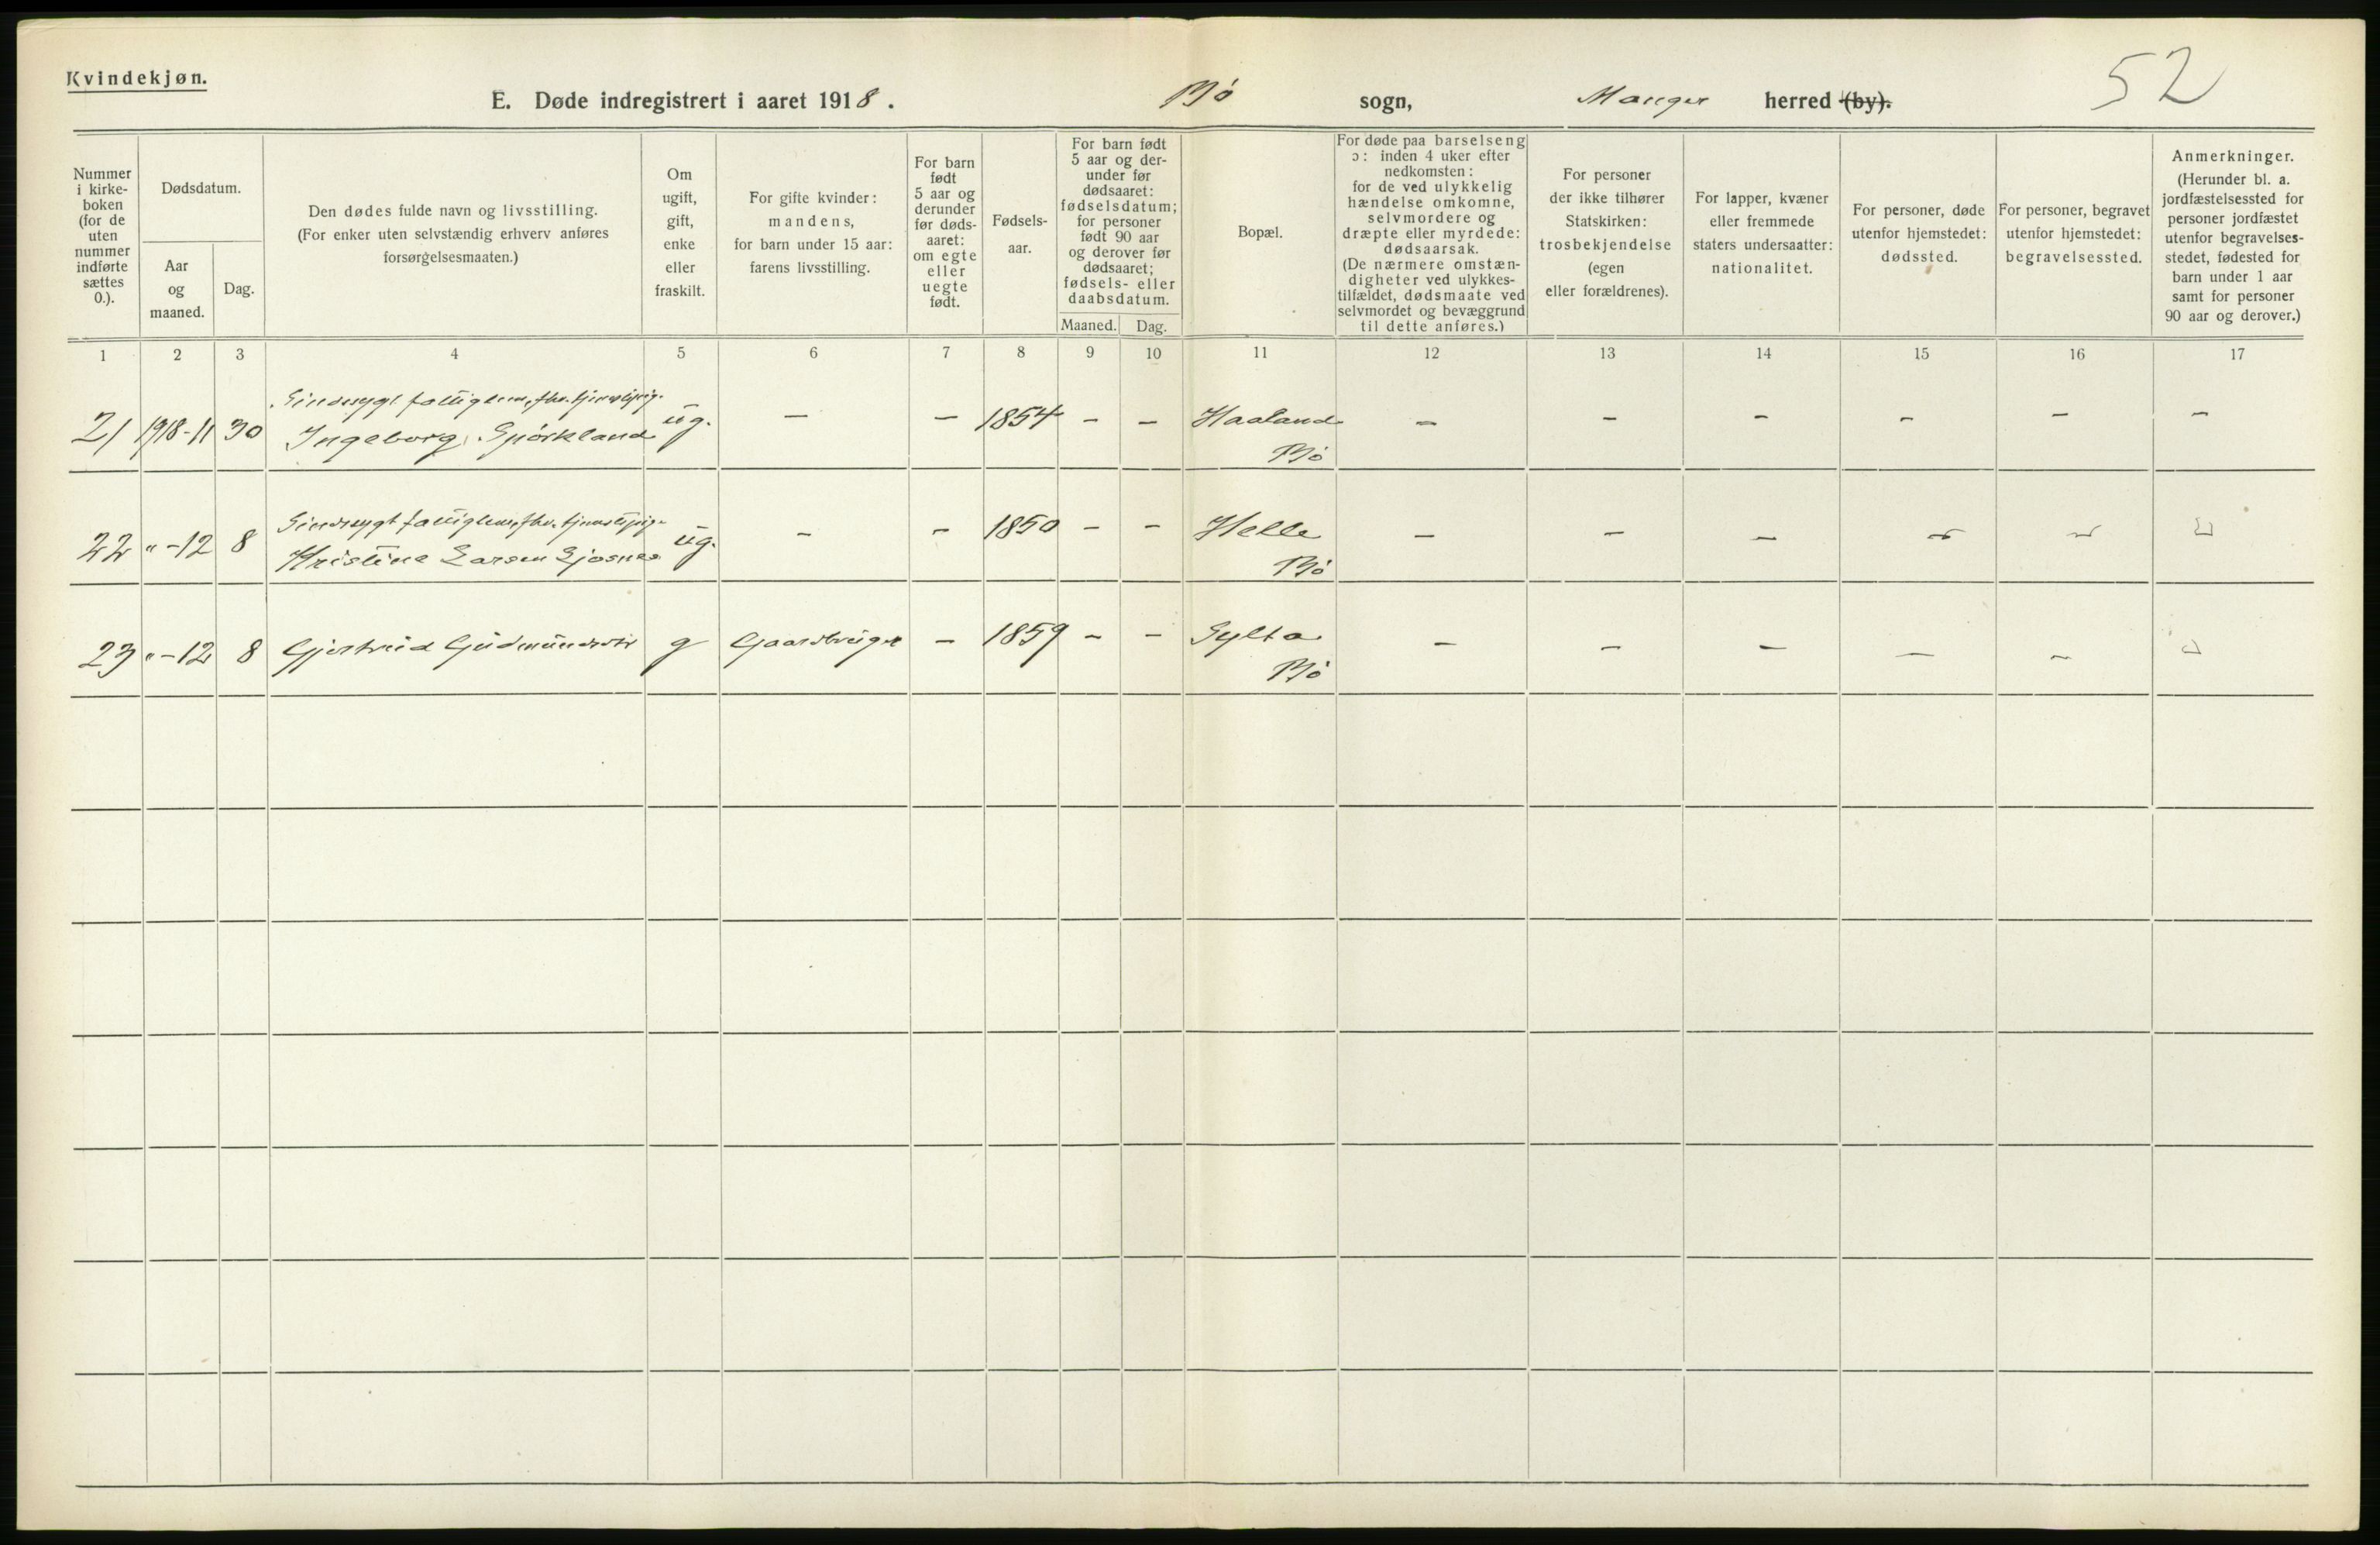 Kvindekjøn.
52
E. Døde indregistrert i aaret 1918. Bø sogn, Manger herred (by).
Nummer i kirke-boken (for de uten nummer indførte sættes 0.).
Dødsdatum.
Aar og maaned.
Dag.
Den dødes fulde navn og livsstilling.
(For enker uten selvstændig erhverv anføres
forsørgelsesmaaten.)
Om ugift, gift, enke eller fraskilt.
For gifte kvinder:
mandens,
for barn under 15 aar:
farens livsstilling.
For barn født 5 aar og derunder før døds-aaret: om egte eller uegte født.
Fødsels-aar.
For barn født 5 aar og der-under før dødsaaret: fødselsdatum; for personer født 90 aar og derover før dødsaaret; fødsels- eller daabsdatum.
Maaned.
Dag.
Bopæl.
For døde paa barselseng
ɔ: inden 4 uker efter
nedkomsten:
for de ved ulykkelig
hændelse omkomne,
selvmordere og
dræpte eller myrdede:
dødsaarsak.
(De nærmere omstæn-
digheter ved ulykkes-
tilfældet, dødsmaate ved
selvmordet og bevæggrund
til dette anføres.)
For personer
der ikke tilhører
Statskirken:
trosbekjendelse
(egen
eller forældrenes).
For lapper, kvæner
eller fremmede
staters undersaatter:
nationalitet.
For personer, døde
utenfor hjemstedet:
dødssted.
For personer, begravet
utenfor hjemstedet:
begravelsessted.
Anmerkninger.
(Herunder bl. a.
jordfæstelsessted for
personer jordfæstet
utenfor begravelses-
stedet, fødested for
barn under 1 aar
samt for personer
90 aar og derover.)
1 2 3 4 5 6 7 8 9 10 11 12 13 14 15 16 17
Sindssygt fattiglem, fhv. tjenestpig.
21 1918-11 30 Ingeborg Spjörkland ug. — — 1854 — — Haaland — — — — — —
Bø
Sindssygt fattiglem, fhv. tjenestpige
22 " -12 8 Kristine Larsen Gjosnes ug. — — 1850 — — Helle — — — — — —
Bø
23 " -12 8 Gjertrud Gudmundsdtr g Gaardbruger — 1859 — — Sylta — — — — — —
Bø